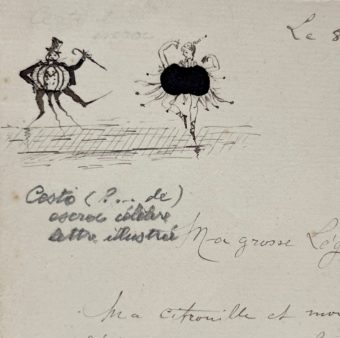 Le 8
Costo (?... de)
escroc célèbre
lettre illustrée
Ma grosse Lég
Ma citrouille et mon